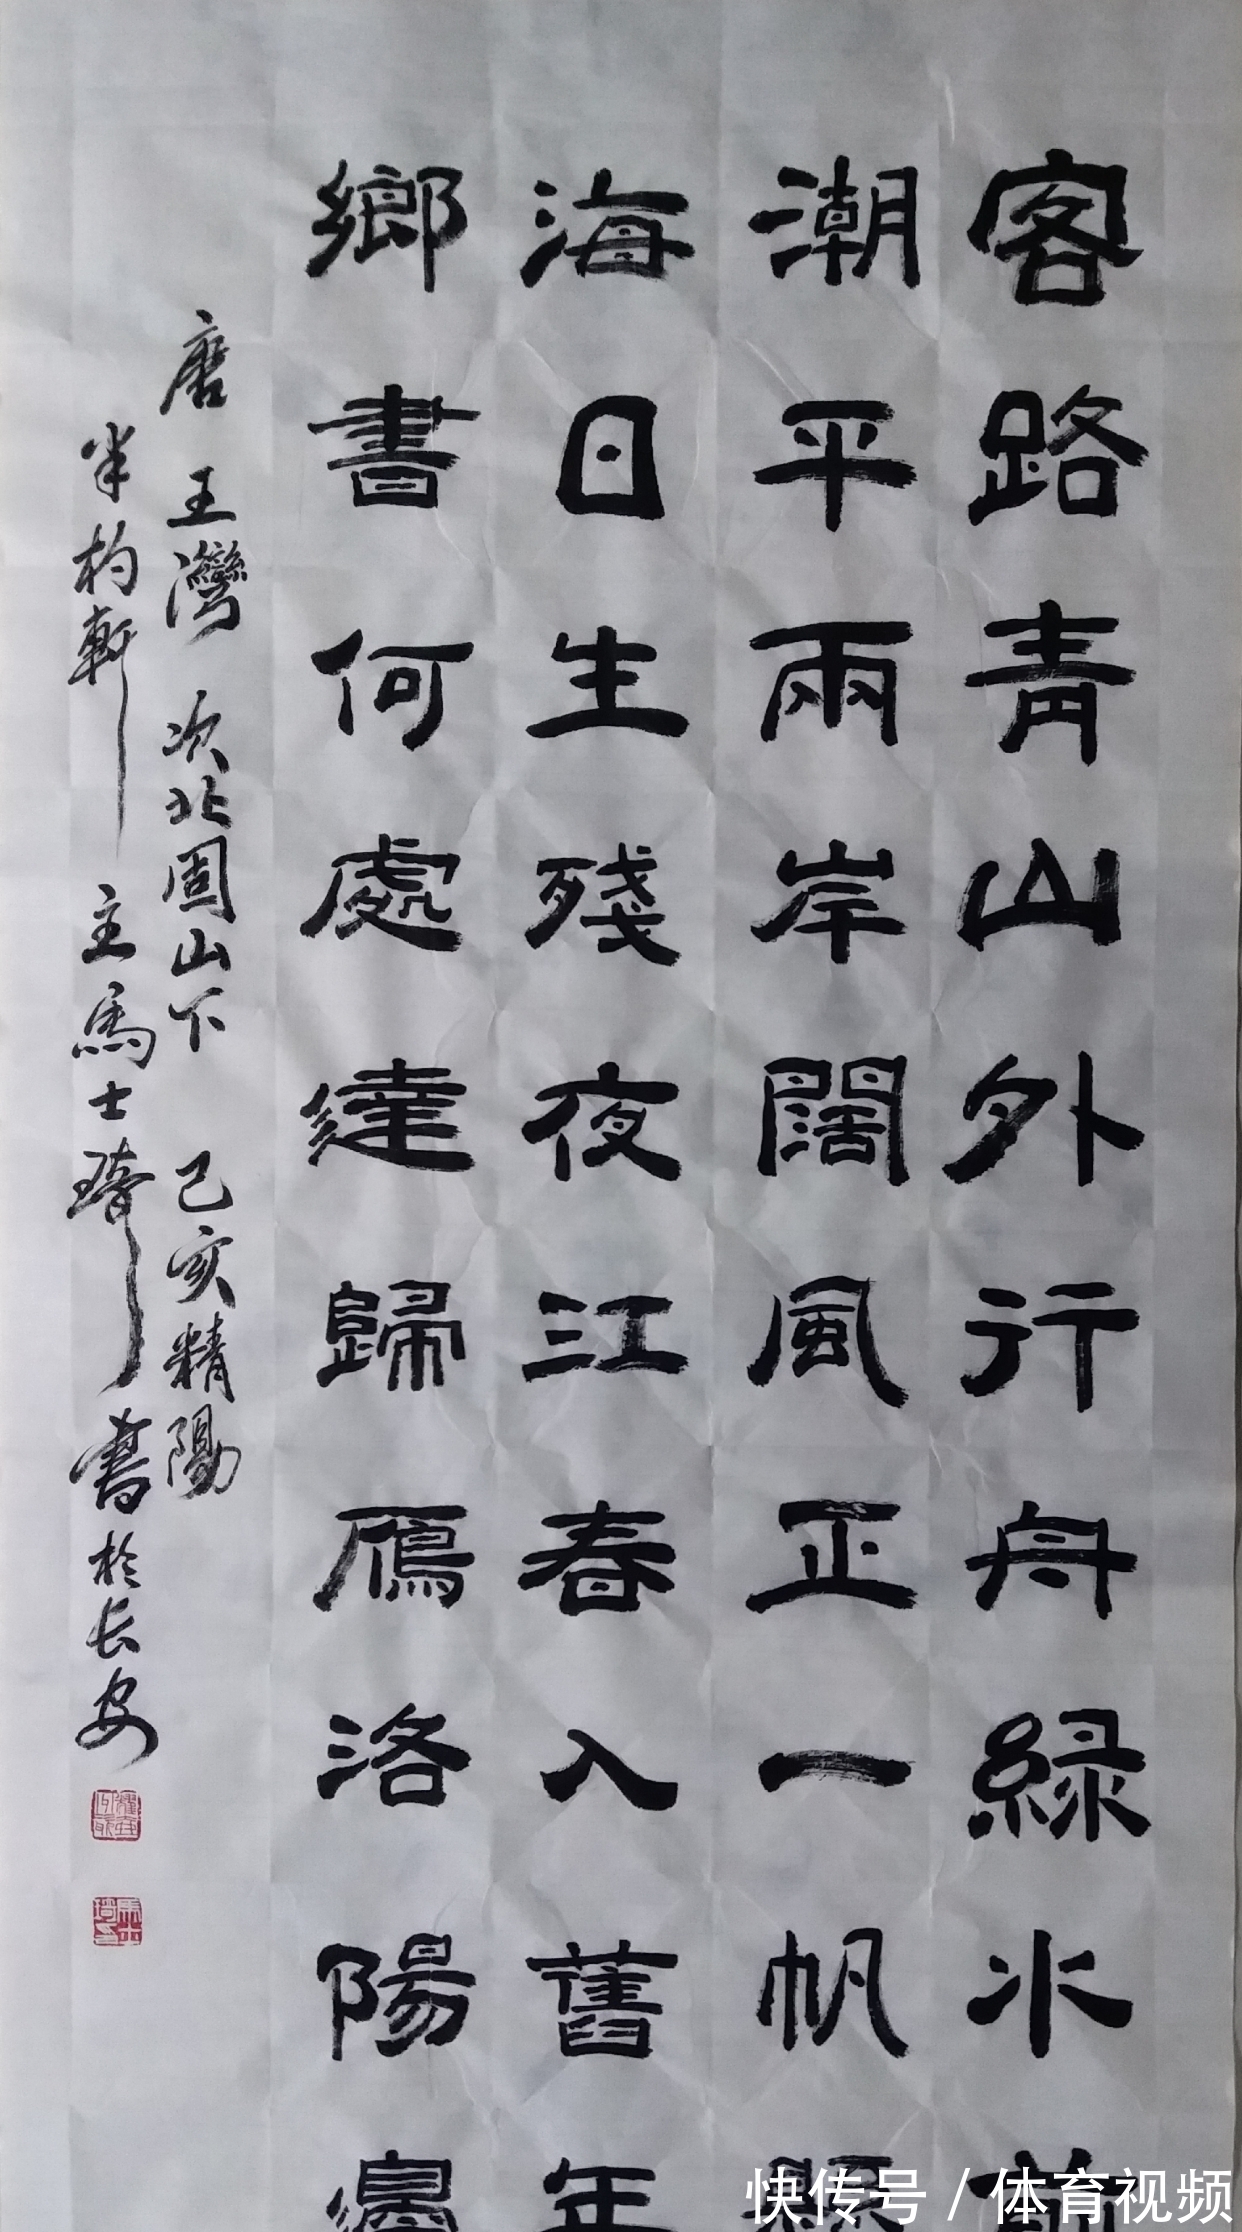 客路青山外行舟綠水前
潮平兩岸闊風正一帆懸
海日生殘夜江春入舊年
鄉書何處達歸鴈洛陽邊
唐 王灣 次北固山下 己亥精陽
半杓軒主馬士琦書於長安
快传号/体育视频